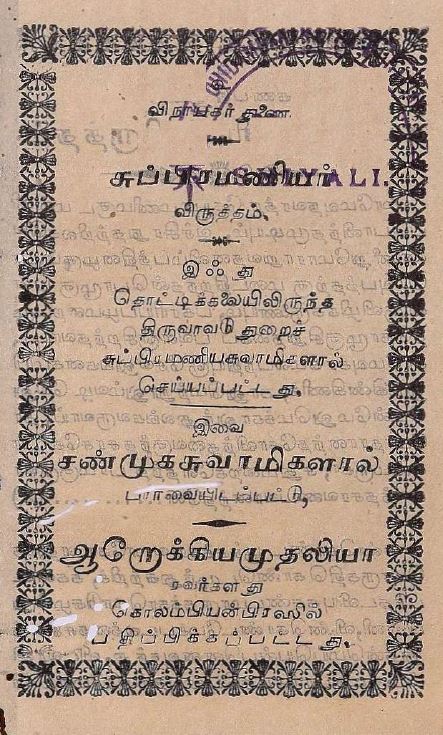 விநாயகர் துணை
சுப்பிரமணியர்
விருத்தம்.
இஃது
தொட்டிக்கலையிலிருந்த
திருவாவடு துறைச்
சுப்பிரமணியசுவாமிகளால்
செய்யப்பட்டது.
இவை
சண்முகசுவாமிகளால்
பார்வையிடப்பட்டு,
ஆறேக்கியமுதலியா
ரவர்களது
கொலம்பியன்பிரஸில்
பதிப்பிக்கப்பட்டது.